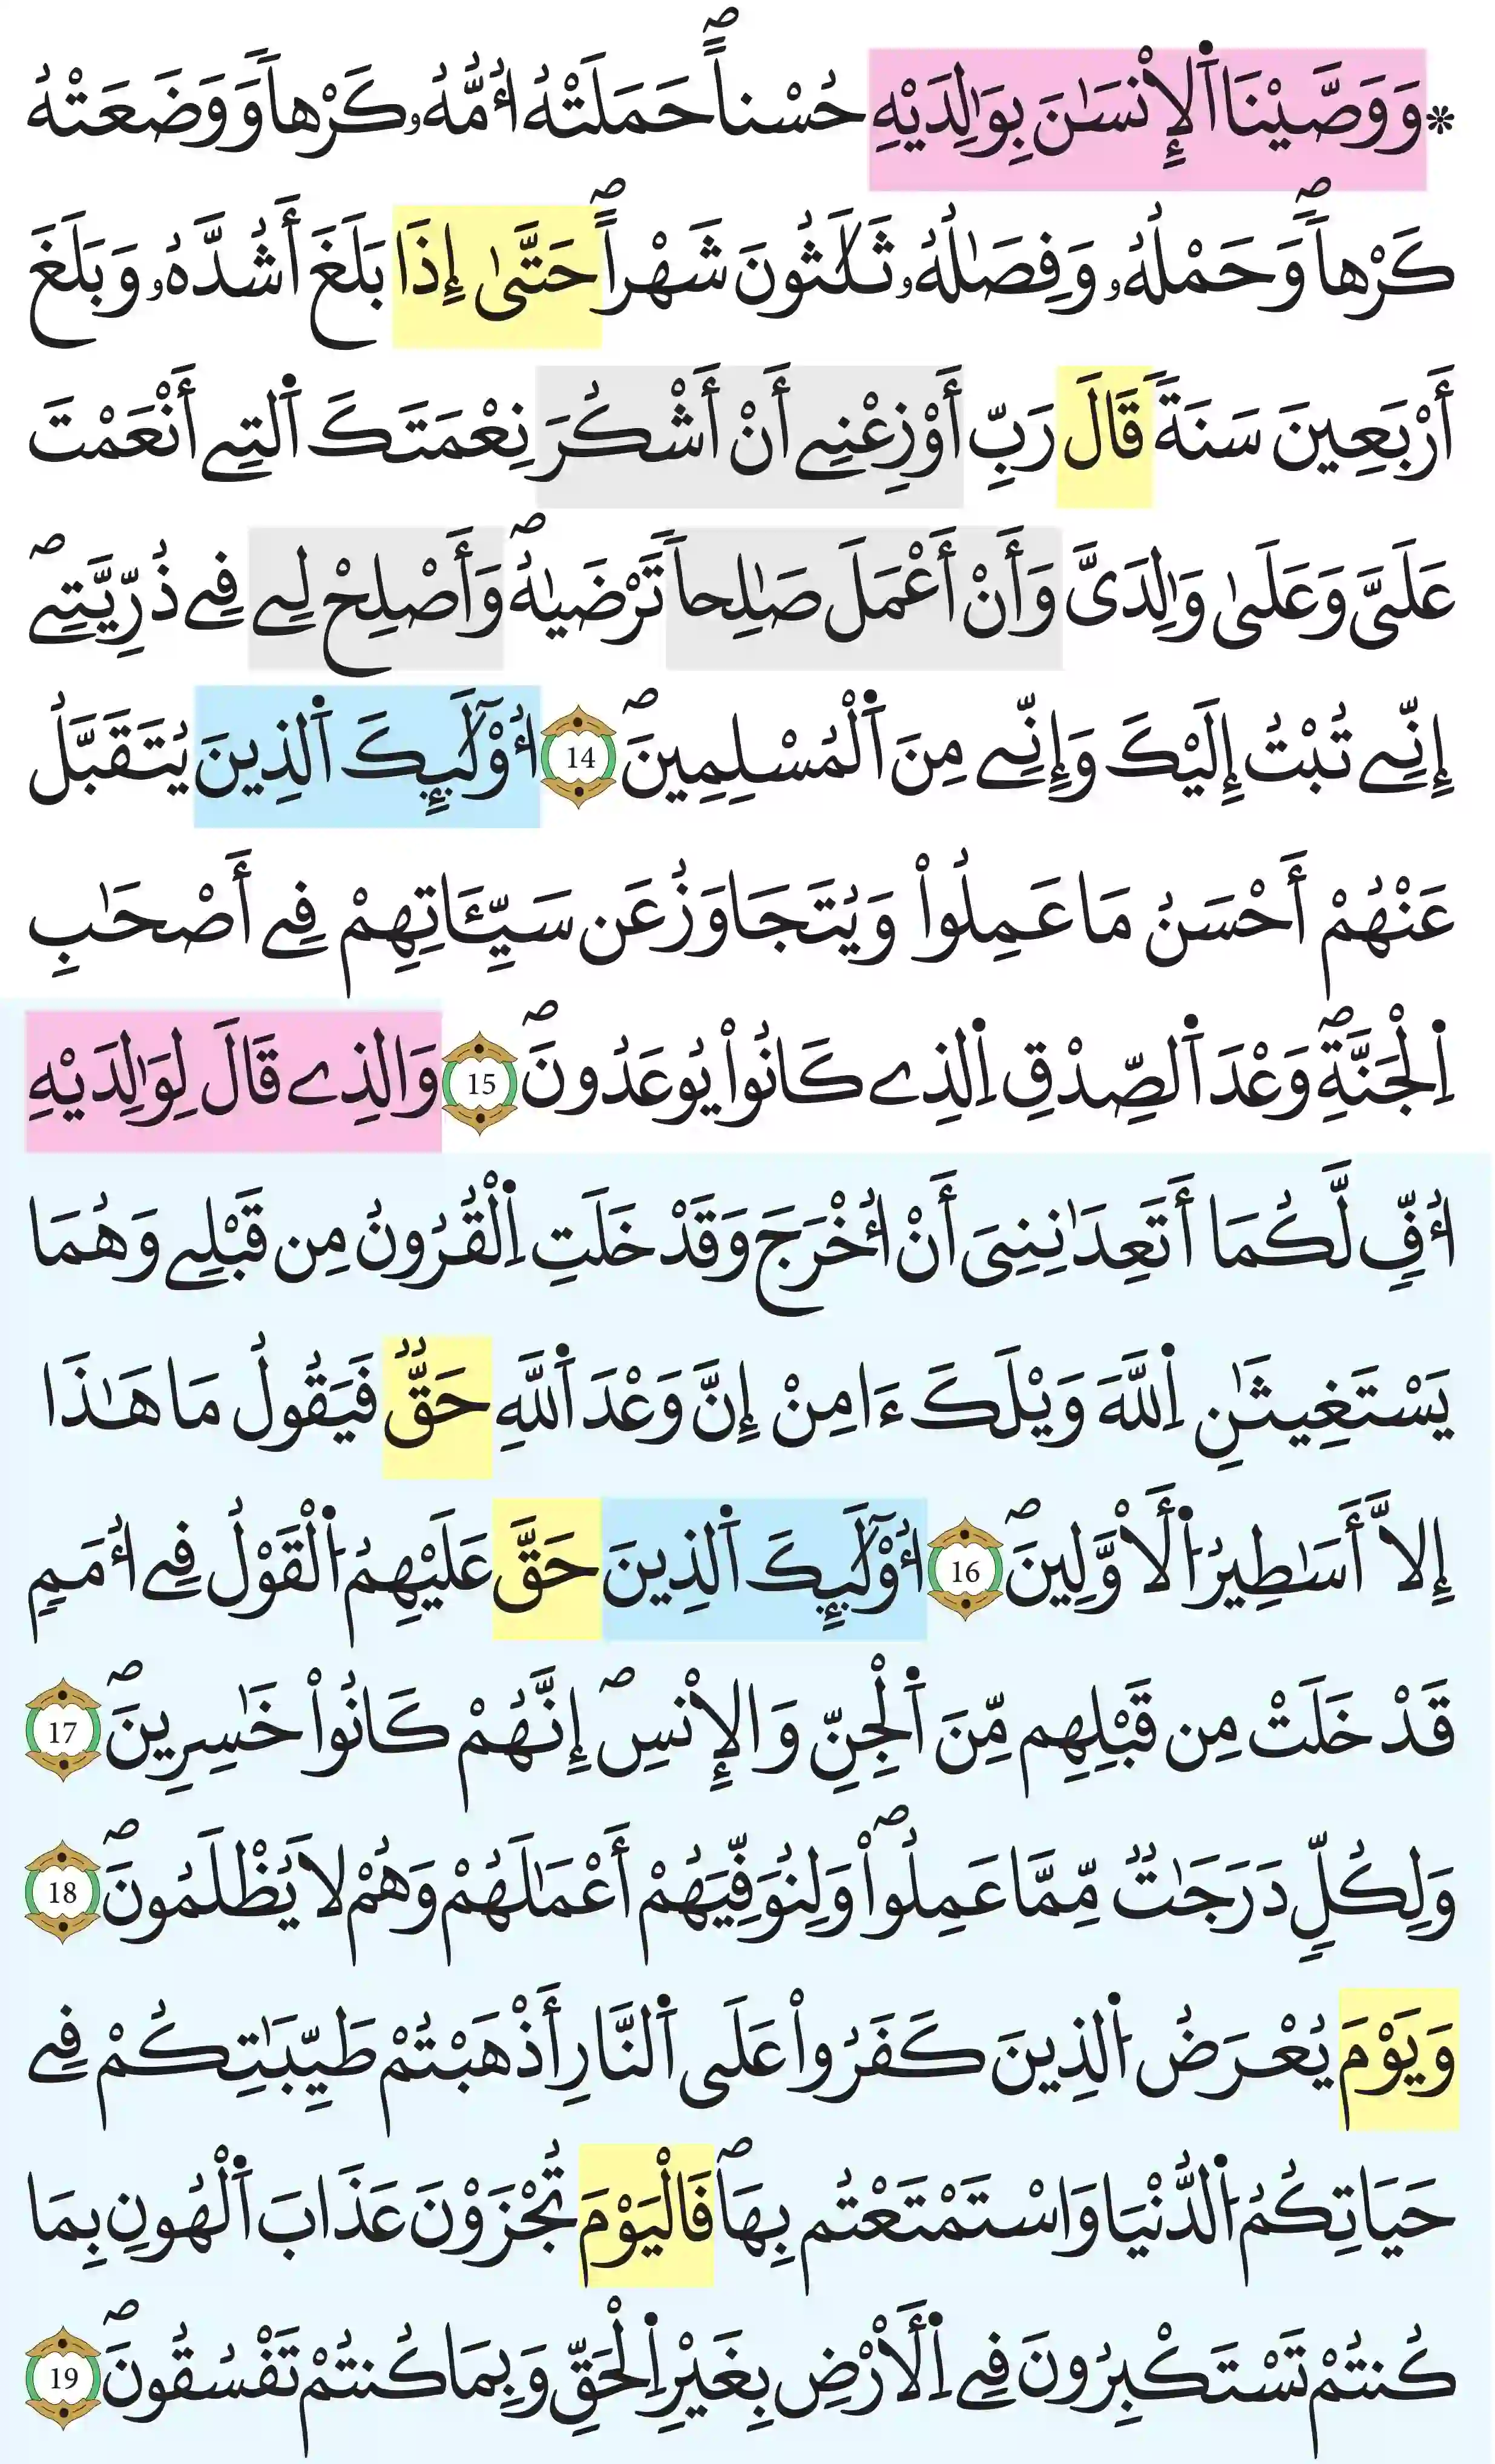 * وَوَصَّيْنَا اَ۬لْإِنسَٰنَ بِوَٰلِدَيْهِ حُسْناًۖ حَمَلَتْهُ أُمُّهُۥ كَرْهاٗ وَوَضَعَتْهُ
كَرْهاٗۖ وَحَمْلُهُۥ وَفِصَٰلُهُۥ ثَلَٰثُونَ شَهْراًۖ حَتَّىٰ إِذَا بَلَغَ أَشُدَّهُۥ وَبَلَغَ
أَرْبَعِينَ سَنَةٗ قَالَ رَبِّ أَوْزِعْنِے أَنْ أَشْكُرَ نِعْمَتَكَ اَ۬لتِے أَنْعَمْتَ
عَلَيَّ وَعَلَىٰ وَٰلِدَيَّ وَأَنْ أَعْمَلَ صَٰلِحاٗ تَرْضَيٰهُۖ وَأَصْلِحْ لِے فِے ذُرِّيَّتِيَۖ
إِنِّے تُبْتُ إِلَيْكَ وَإِنِّے مِنَ اَ۬لْمُسْلِمِينَۖ 14 أُوْلَٰٓئِكَ اَ۬لذِينَ يُتَقَبَّلُ
عَنْهُمْ أَحْسَنُ مَا عَمِلُواْ وَيُتَجَاوَزُ عَن سَيِّـَٔاتِهِمْ فِے أَصْحَٰبِ
اِ۬لْجَنَّةِۖ وَعْدَ اَ۬لصِّدْقِ اِ۬لذِے كَانُواْ يُوعَدُونَۖ 15 وَالذِے قَالَ لِوَٰلِدَيْهِ
أُفّٖ لَّكُمَا أَتَعِدَٰنِنِيَ أَنْ أُخْرَجَ وَقَدْ خَلَتِ اِ۬لْقُرُونُ مِن قَبْلِے وَهُمَا
يَسْتَغِيثَٰنِ اِ۬للَّهَ وَيْلَكَ ءَامِنْ إِنَّ وَعْدَ اَ۬للَّهِ حَقّٞ فَيَقُولُ مَا هَٰذَا
إِلَّا أَسَٰطِيرُ اُ۬لْأَوَّلِينَۖ 16 أُوْلَٰٓئِكَ اَ۬لذِينَ حَقَّ عَلَيْهِمُ اُ۬لْقَوْلُ فِے أُمَمٖ
قَدْ خَلَتْ مِن قَبْلِهِم مِّنَ اَ۬لْجِنِّ وَالْإِنسِۖ إِنَّهُمْ كَانُواْ خَٰسِرِينَۖ 17
وَلِكُلّٖ دَرَجَٰتٞ مِّمَّا عَمِلُواْۖ وَلِنُوَفِّيَهُمْ أَعْمَٰلَهُمْ وَهُمْ لَا يُظْلَمُونَۖ 18
وَيَوْمَ يُعْرَضُ اُ۬لذِينَ كَفَرُواْ عَلَى اَ۬لنَّارِ أَذْهَبْتُمْ طَيِّبَٰتِكُمْ فِے
حَيَاتِكُمُ اُ۬لدُّنْيَا وَاسْتَمْتَعْتُم بِهَاۖ فَالْيَوْمَ تُجْزَوْنَ عَذَابَ اَ۬لْهُونِ بِمَا
كُنتُمْ تَسْتَكْبِرُونَ فِے اِ۬لْأَرْضِ بِغَيْرِ اِ۬لْحَقِّ وَبِمَا كُنتُمْ تَفْسُقُونَۖ 19